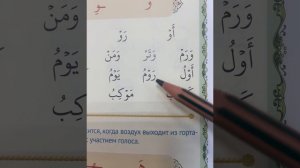 أَوْ رَوْ
وَرَمْ وَتَرُ وَمَنْ
أَوْلُ رَوْمُ يَوْمُ
مَوْكِبُ
ится, когда воздух выходит из горта-
с участием голоса.